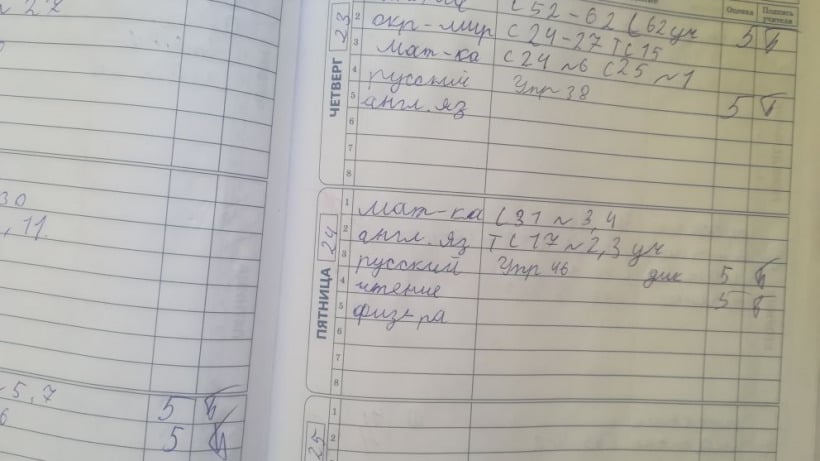 27
30
, 11.
5, 7
5
6
5
Оценка Подпись учителя
ЧЕТВЕРГ 23
С 52-62 С 62 уч
2 окр-мир С 24-27 Т С 15 5
3 мат-ка С 24 №6 С 25 №1
4 русский Упр 38
5 англ. яз 5
6
7
8
ПЯТНИЦА 24
1 мат-ка С 31 № 3,4
2 англ. яз Т С 17 № 2,3 уч
3 русский Упр 46 дик 5
4 чтение 5
5 физ-ра
6
7
8
25
1
2